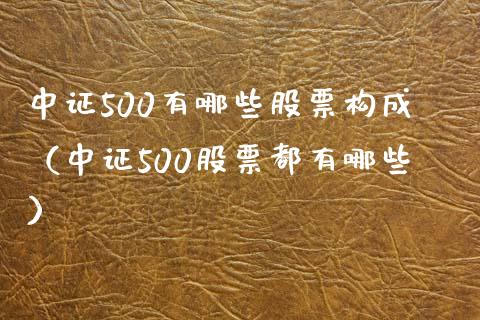 中证500有哪些股票构成
（中证500股票都有哪些
）